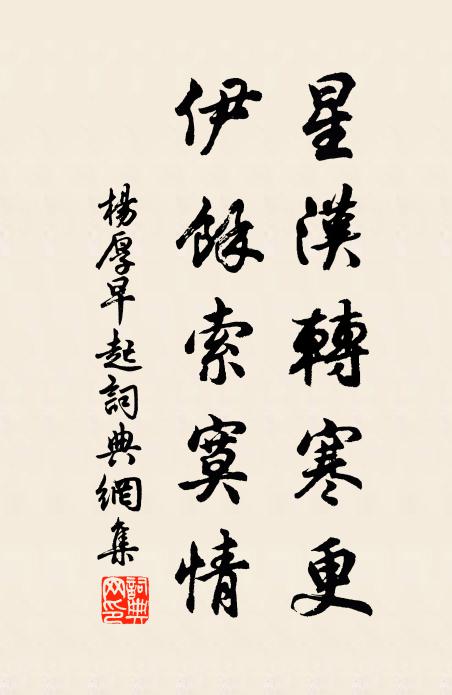 星漢轉寒更
伊餘索寞情
楊厚早起詞典網集
詞典網印